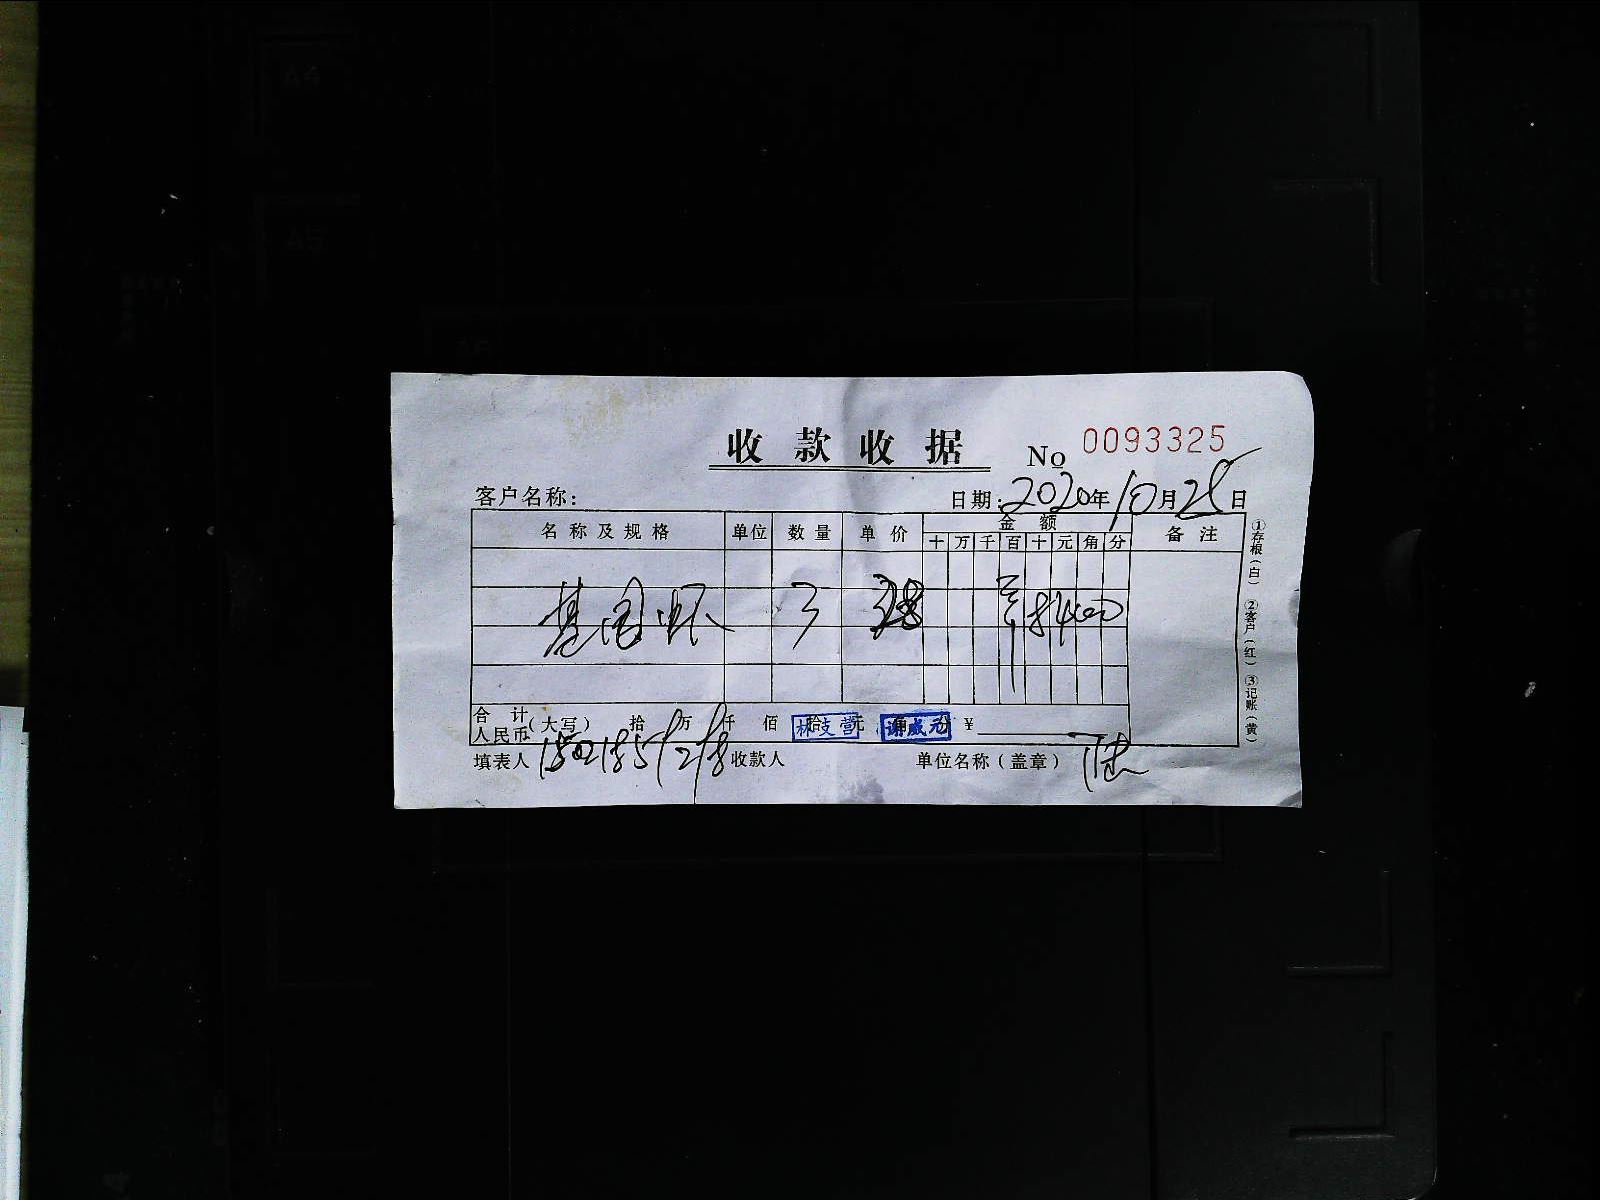 收款收据
No 0093325
客户名称:
日期: 2020年10月28日
名称及规格 单位 数量 单价 金额 备注
十 万 千 百 十 元 角 分
基围虾 3 28 8400
合计
人民币 (大写) 拾 万 仟 佰 拾 元 角 分 ¥
林支营 谢威元
填表人 收款人 单位名称(盖章)
①存根(白) ②客户(红) ③记账(黄)